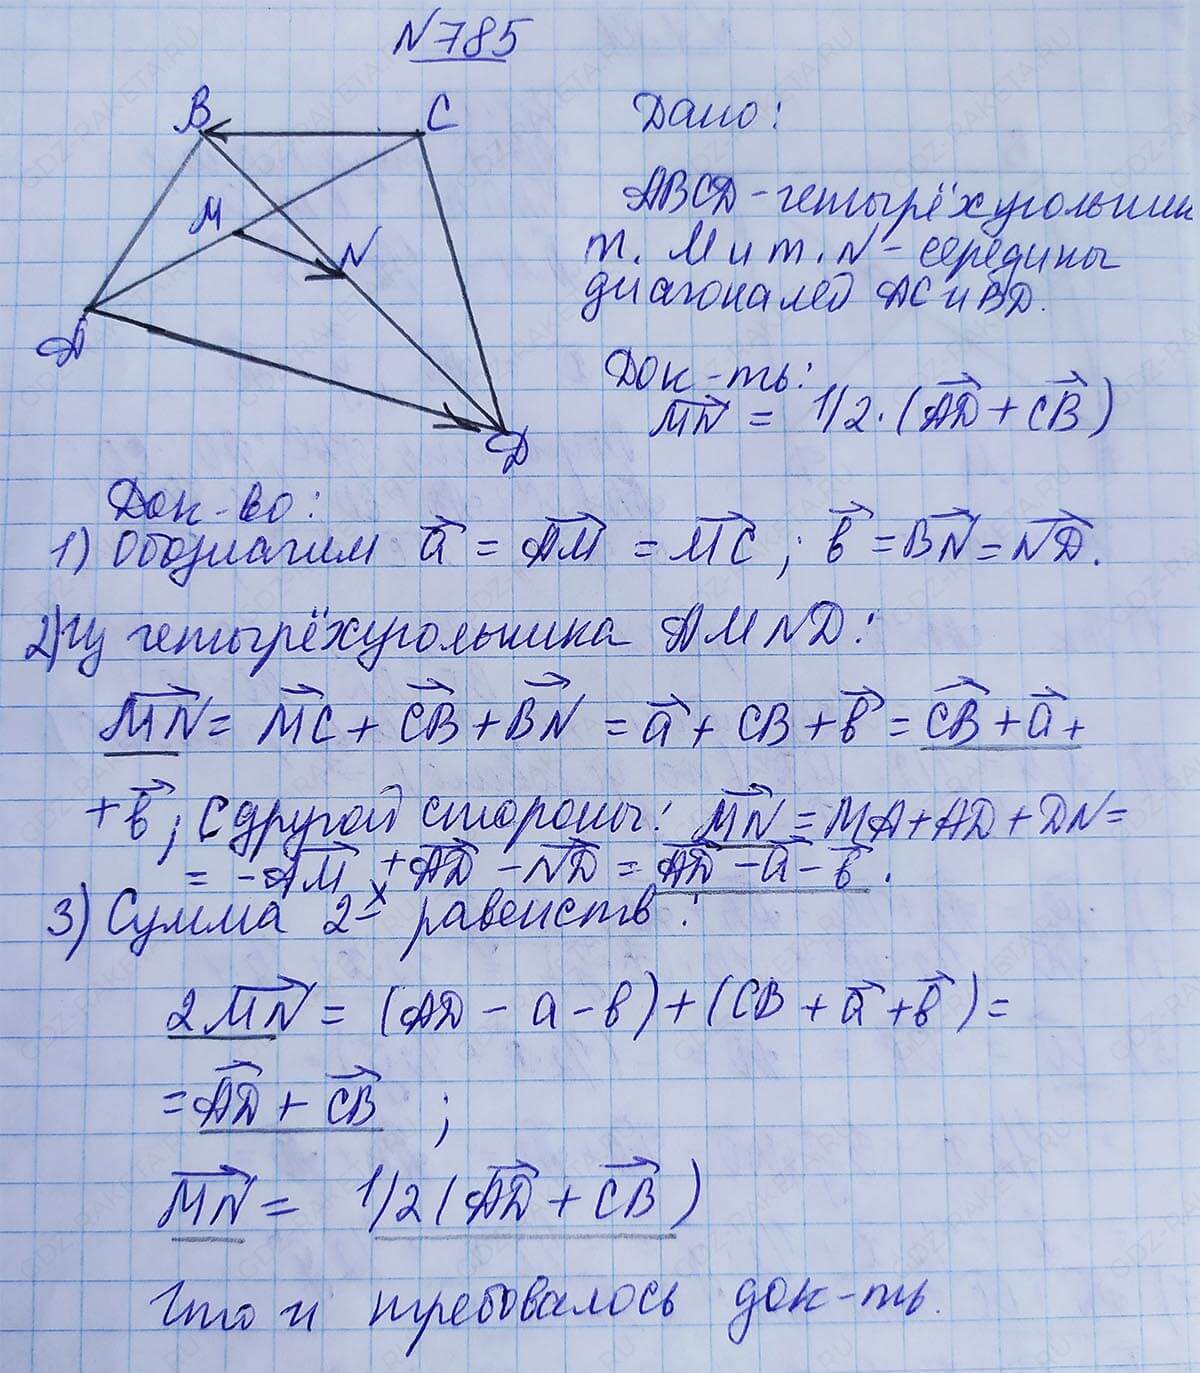 N785
B
C
M
N
A
D
Дано:
ABCD - четырёхугольник
т. M и т. N - середины
диагоналей AC и BD.
Док-ть:
MN = 1/2 · (AD + CB)
Док-во:
1) Обозначим a = AM = MC ; в = BN = ND.
2) Из четырёхугольника AMND:
MN = MC + CB + BN = a + CB + в = CB + a +
+ в ; С другой стороны: MN = MA + AD + DN =
= - AM + AD - ND = AD - a - в .
3) Сумма 2-х равенств :
2MN = (AD - a - в) + (CB + a + в) =
= AD + CB ;
MN = 1/2 (AD + CB)
Что и требовалось док-ть.